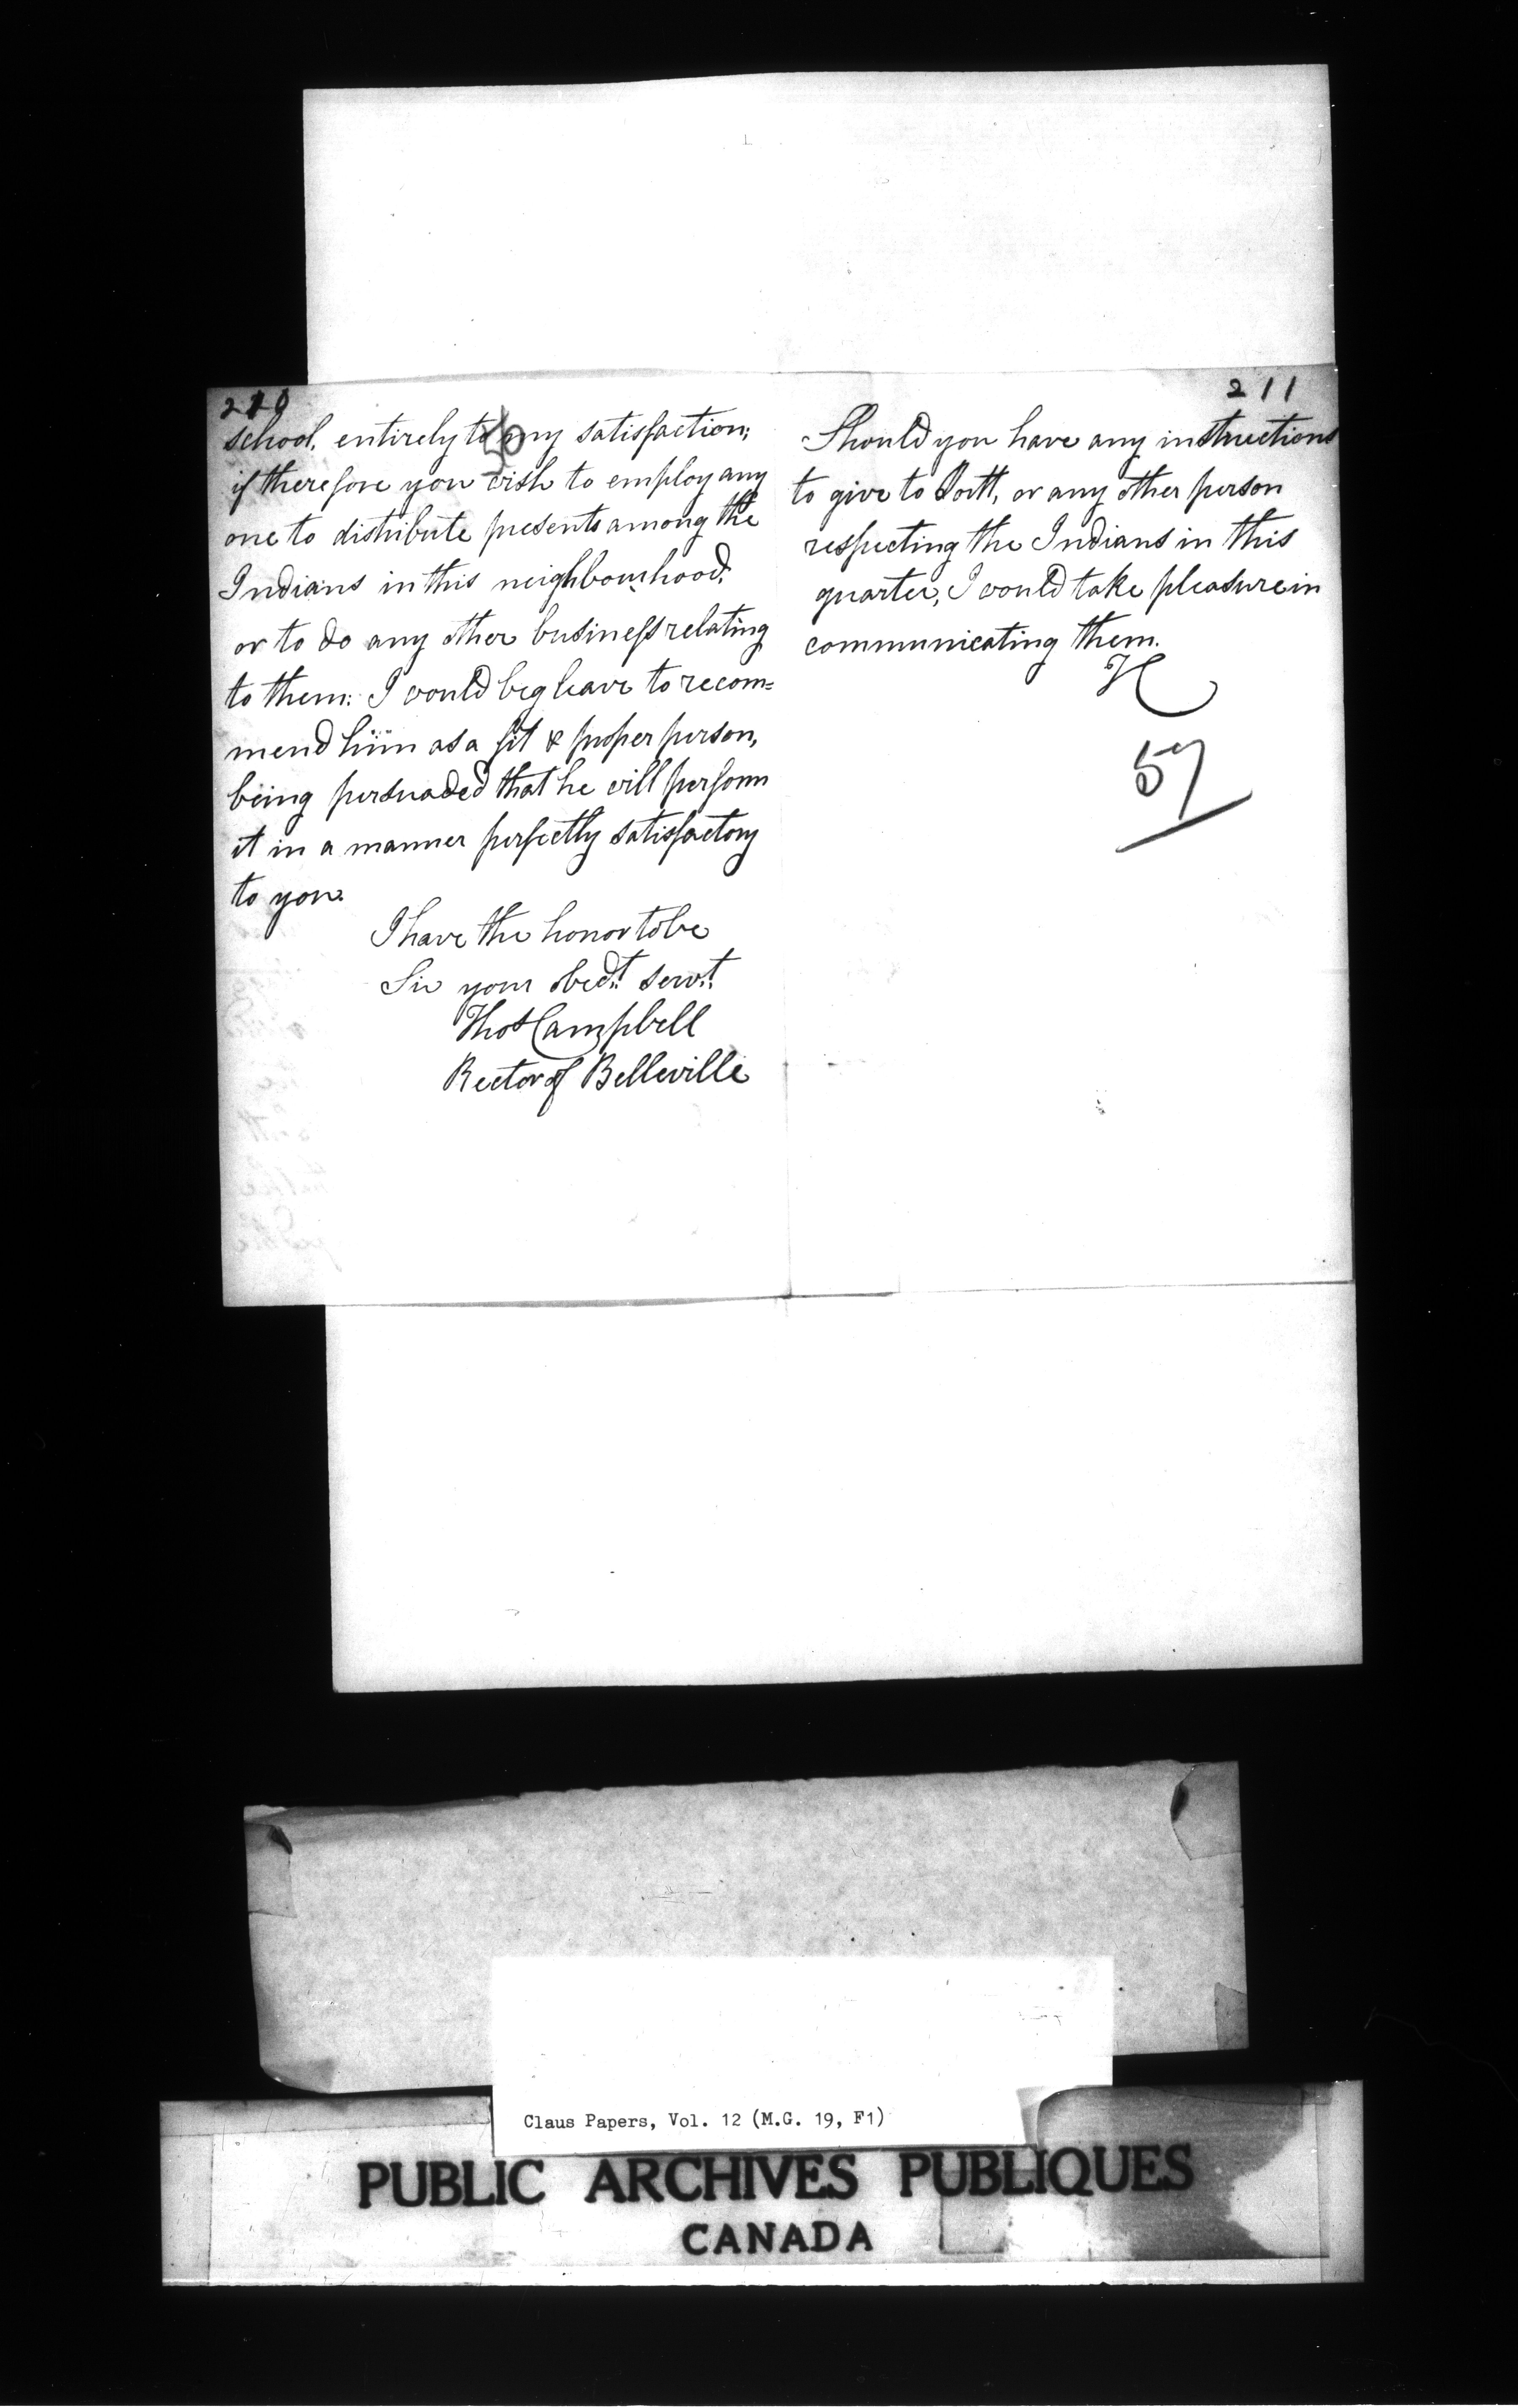 210
school, entirely to my satisfaction;
56
if therefore you wish to employ any
one to distribute presents among the
Indians in this neighbourhood,
or to do any other business relating
to them: I would beg leave to recom=
mend him as a fit & proper person,
being persuaded that he will perform
it in a manner perfectly satisfactory
to you.
I have the honor to be
Sir your obedt. servt.
Thos Campbell
Rector of Belleville
211
Should you have any instructions
to give to Portt, or any other person
respecting the Indians in this
quarter, I would take pleasure in
communicating them.
57
Claus Papers, Vol. 12 (M.G. 19, F1)
PUBLIC ARCHIVES PUBLIQUES
CANADA